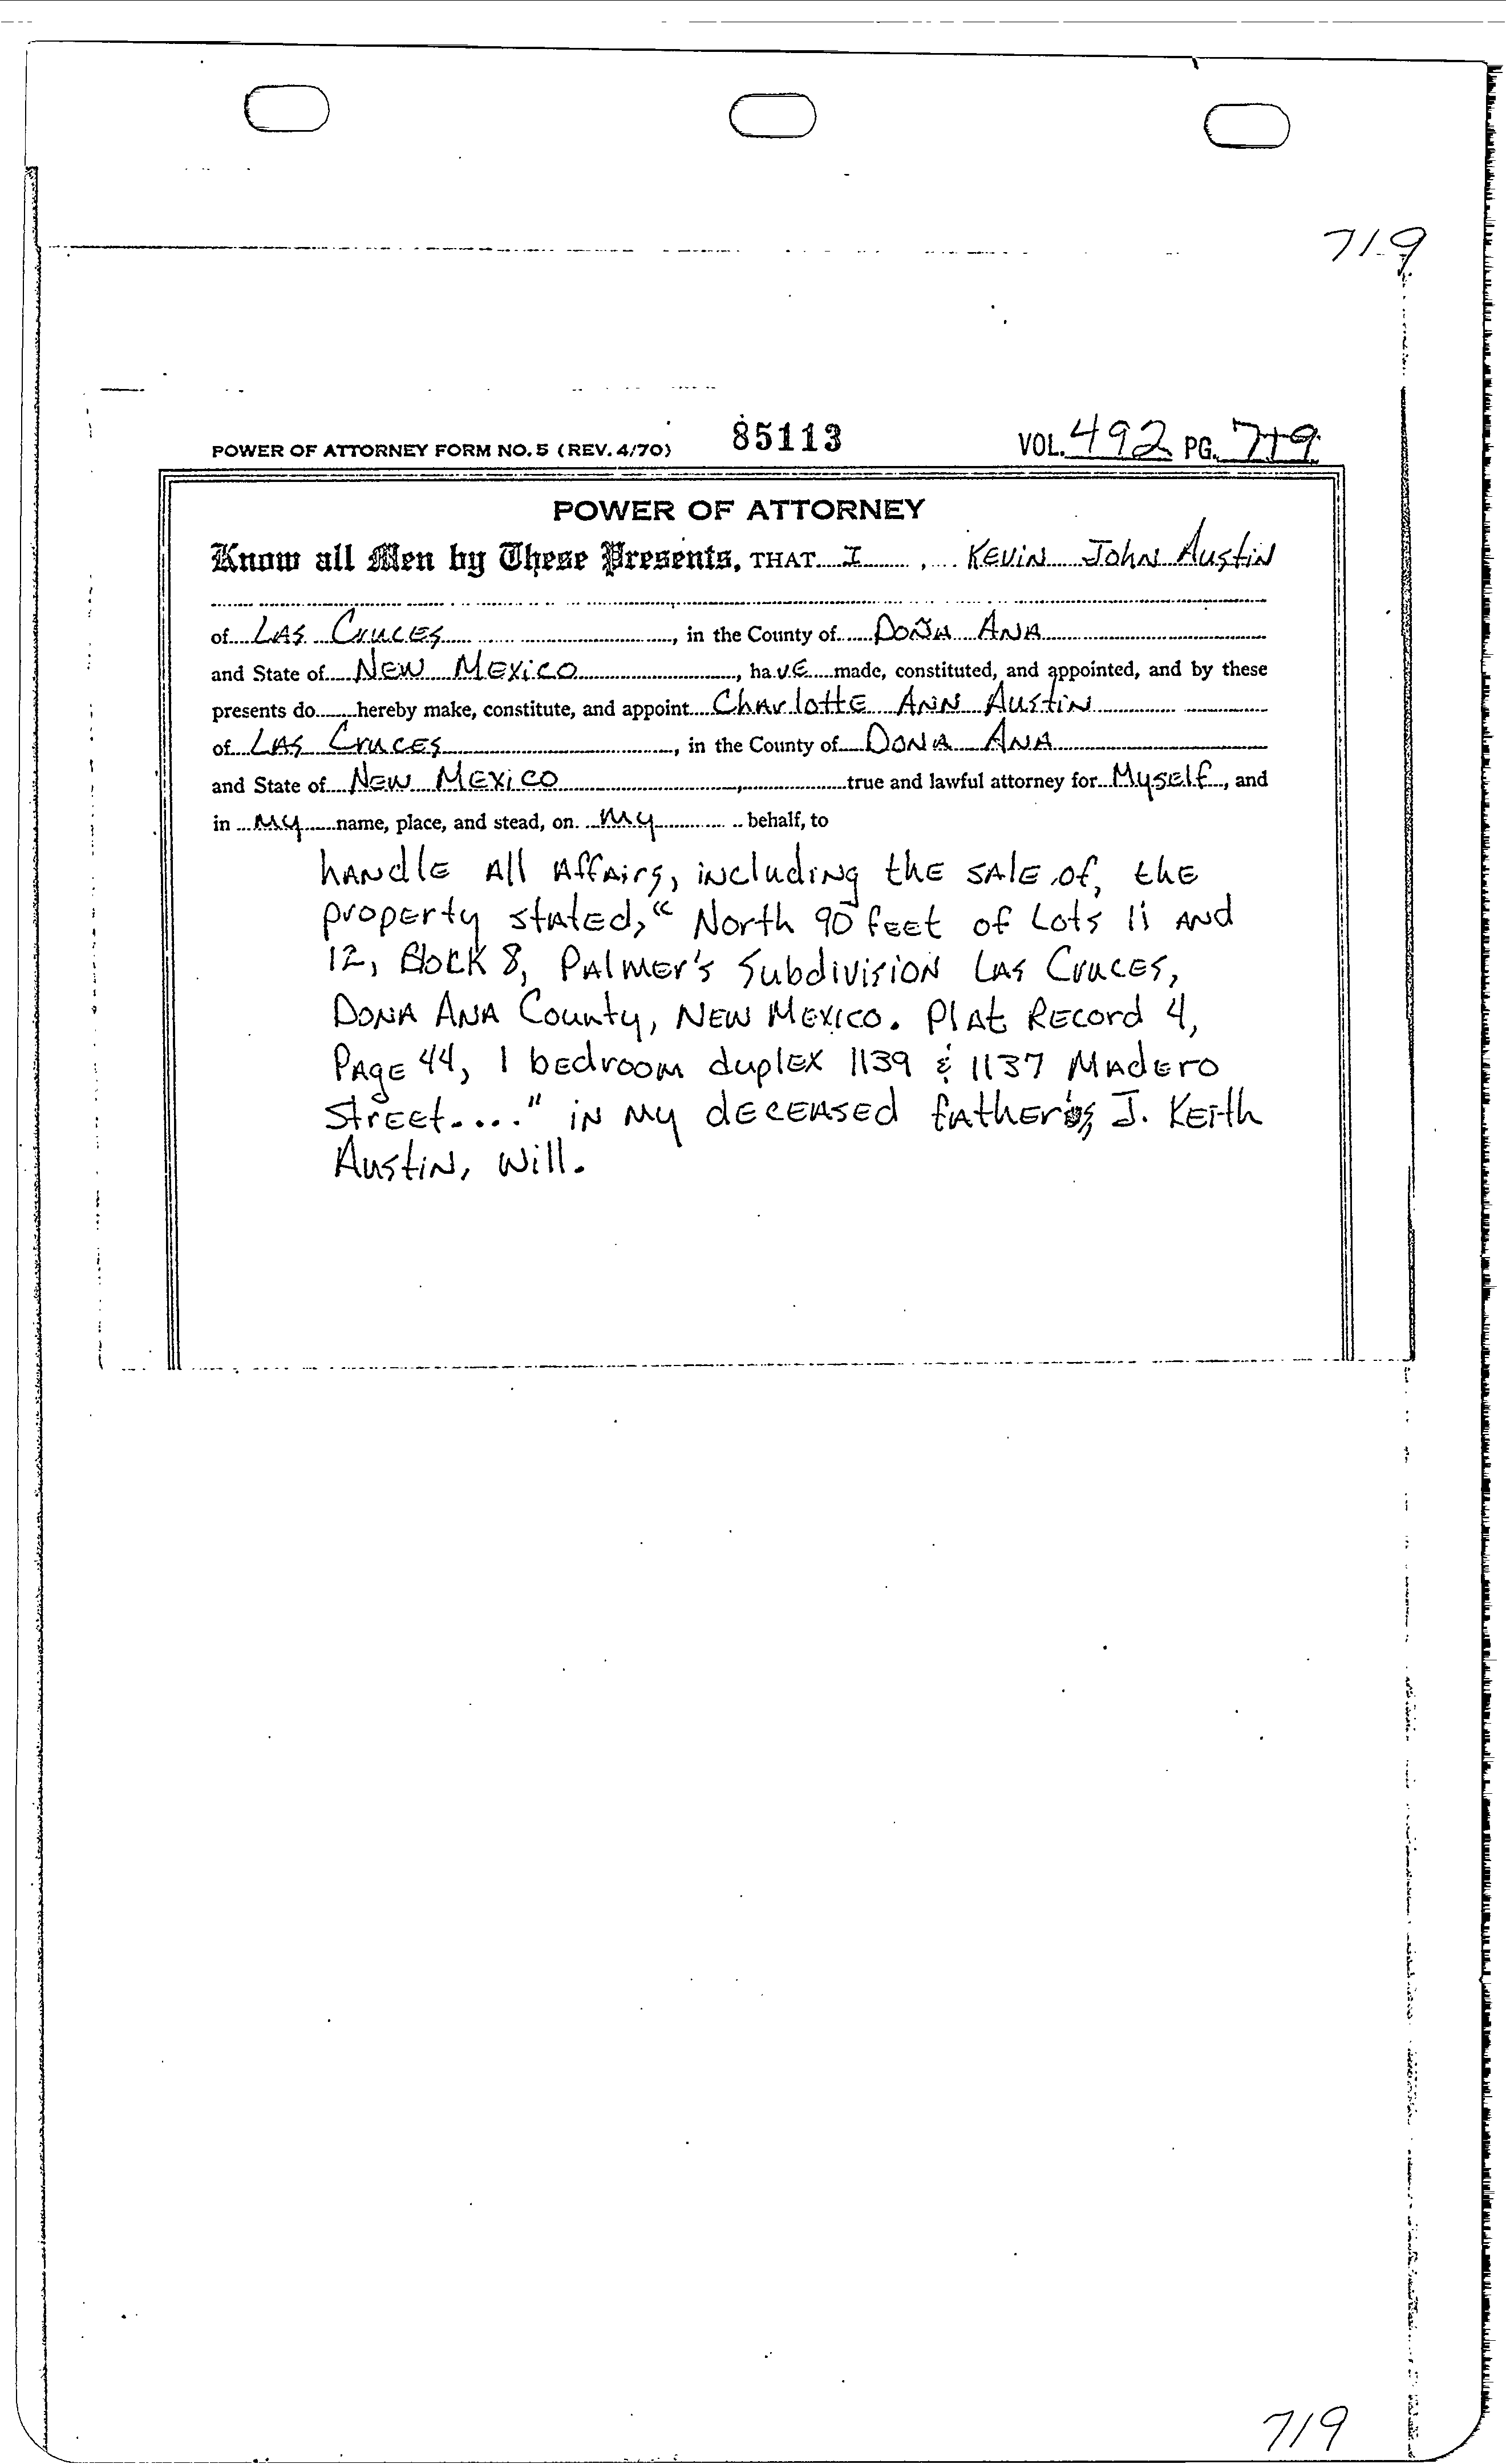 719
POWER OF ATTORNEY FORM NO. 5 (REV. 4/70) 85113 VOL. 492 PG. 719
POWER OF ATTORNEY
Know all Men by These Presents, THAT I, KEVIN JOHN AUSTIN
of LAS CRUCES, in the County of DOÑA ANA
and State of NEW MEXICO, have made, constituted, and appointed, and by these
presents do hereby make, constitute, and appoint Charlotte ANN AUSTIN
of LAS CRUCES, in the County of DONA ANA
and State of NEW MEXICO, true and lawful attorney for Myself, and
in My name, place, and stead, on My behalf, to
handle all affairs, including the sale of, the
property stated, "North 90 feet of Lots 11 and
12, Block 8, Palmer's Subdivision Las Cruces,
Dona Ana County, New Mexico. Plat Record 4,
Page 44, 1 bedroom duplex 1139 & 1137 Madero
Street...." in my deceased father's, J. Keith
Austin, Will.
719